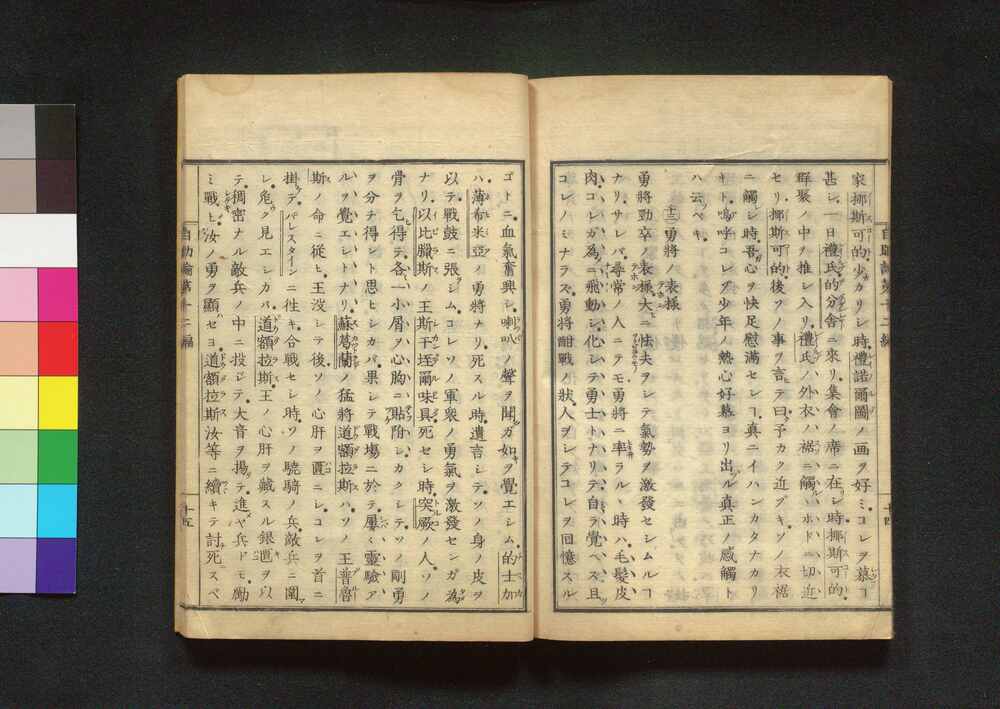 家挪斯可的少カリシ時禮諾爾圖ノ画ヲ好ミコレヲ慕フヿ
甚シ一日禮氏的分舎ニ來リ集會ノ席ニ在シ時挪斯可的
群聚ノ中ヲ推シ入リ禮氏ノ外衣ノ裾ニ觸ルホドニ切近
セリ挪斯可的後ソノ事ヲ言テ曰ク予カク近ヅキソノ衣裾
ニ觸シ時吾心ヲ快足慰滿セシヿ真ニイハンカタナカリ
キト嗚呼コレゾ少年ノ熱心好慕ヨリ出ル真正ノ感觸ト
ハ云ベキ
十三勇將ノ表様
勇將勁卒ノ表様大ニ怯夫ヲシテ氣勢ヲ激發セシムルヿ
ナリサレバ尋常ノ人ニテモ勇將ニ率ラルヽ時ハ毛髮皮
肉コレガ為ニ飛動シ化シテ勇士トナリテ自ラ覺ヘス且
コレノミナラス勇將酣戰ノ狀人ヲシテコレヲ回憶スル
ゴトニ血氣奮興シ喇叭ノ聲ヲ聞ガ如ヲ覺エシム的士加
ハ薄希米亞ノ勇將ナリ死スル時遺言シテソノ身ノ皮ヲ
以テ戰鼓ニ張シムコレソノ軍衆ノ勇氣ヲ激發センガ為
ナリ以比臘斯ノ王斯干垤爾味具死セシ時突厥ノ人ソノ
骨ヲ乞得テ各一小屑ヲ心胸ニ貼附シカクシテソノ剛勇
ヲ分チ得ント思ヒシカバ果シテ戰場ニ於テ屢々靈驗ア
ルヲ覺エシトナリ蘇葛蘭ノ猛將道額拉斯ハソノ王普魯
斯ノ命ニ從ヒ王沒シテ後ソノ心肝ヲ匱ニシコレヲ首ニ
掛テパレスタインニ往キ合戰セシ時ソノ驍騎ノ兵敵兵ニ圍
レ危ク見エシカバ道額拉斯王ノ心肝ヲ藏スル銀匱ヲ以
テ稠密ナル敵兵ノ中ニ投シテ大音ヲ揚テ進ヤ兵ドモ勵
ミ戰ヒ汝ノ勇ヲ顯セヨ道額拉斯汝等ニ續キテ討死スベ
自助論第十二編
十五